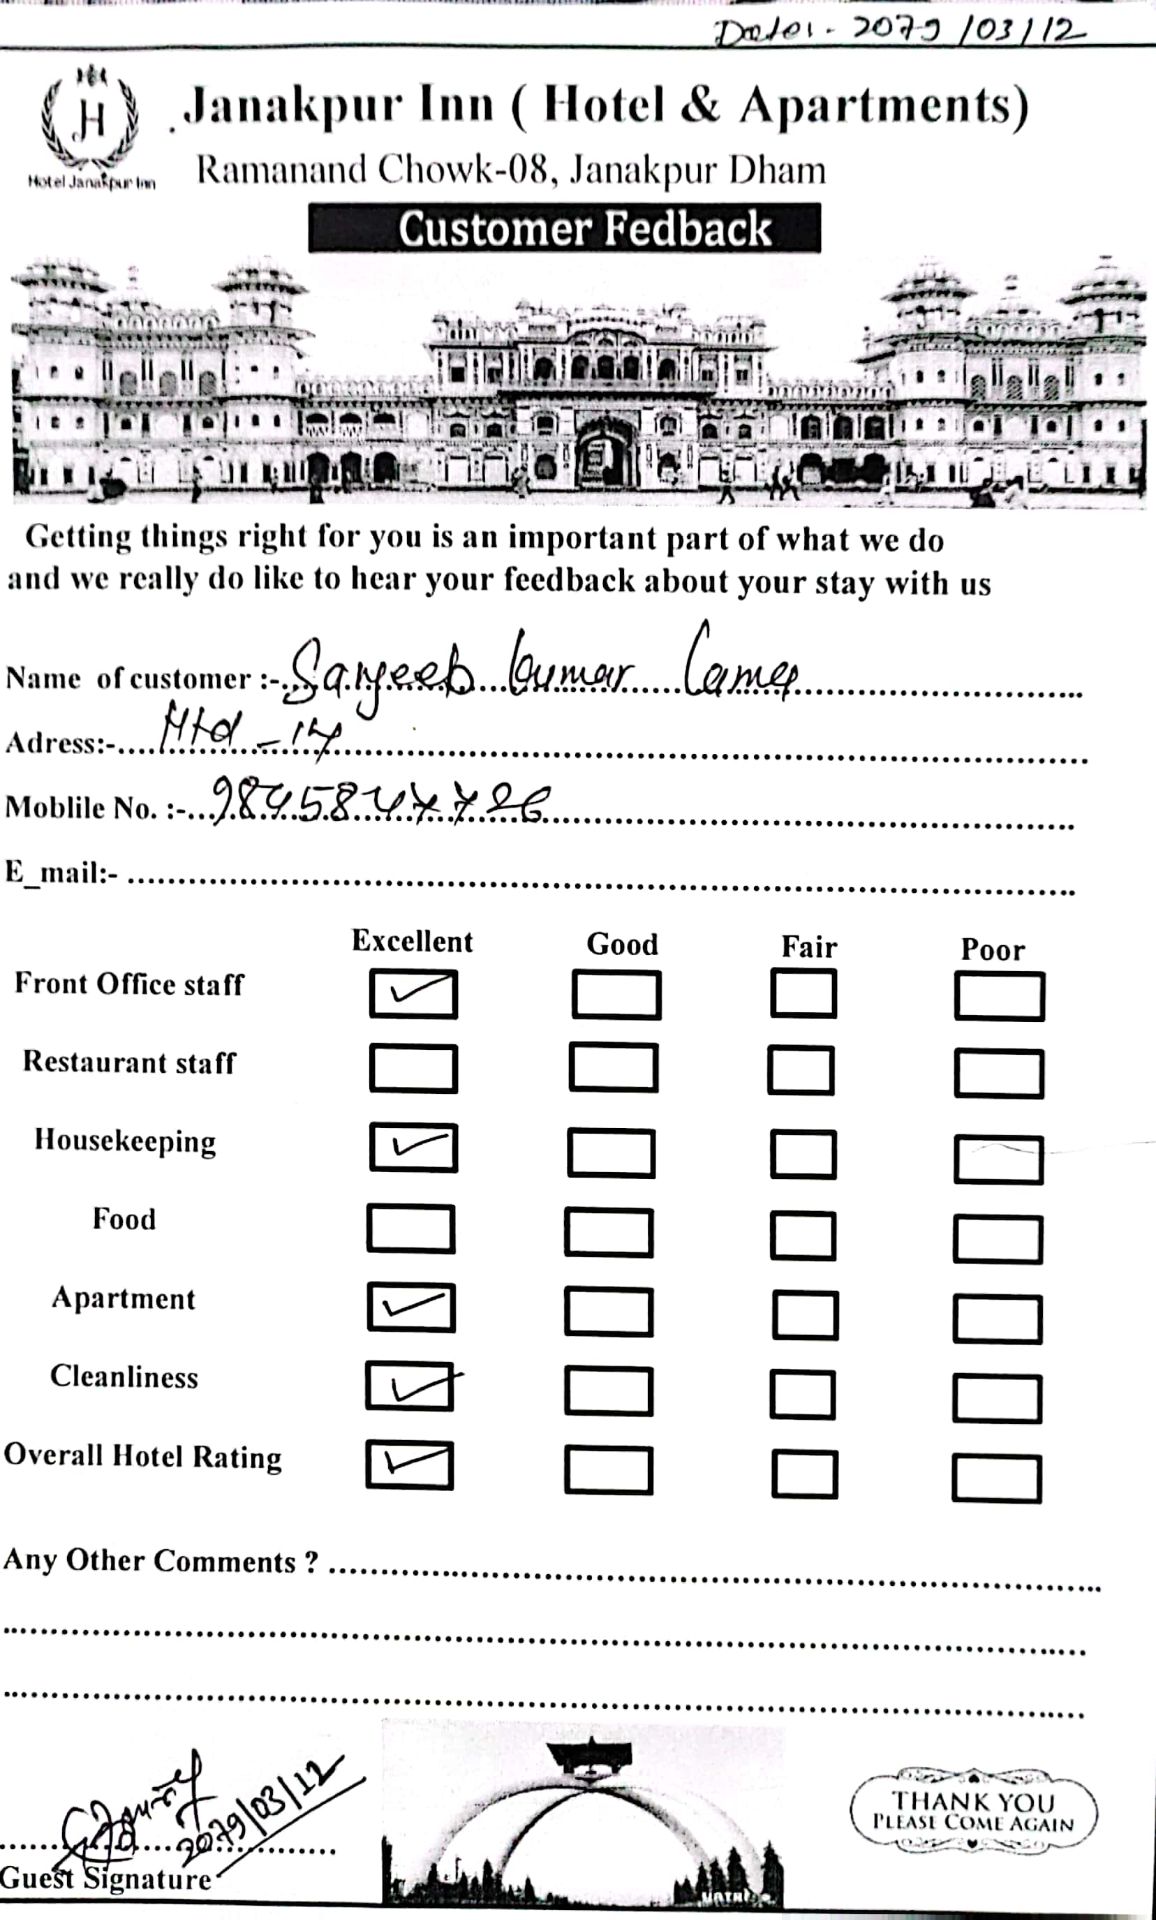 Date:- 2079/03/12
H
Hotel Janakpur Inn
Janakpur Inn ( Hotel & Apartments)
Ramanand Chowk-08, Janakpur Dham
Customer Fedback
Getting things right for you is an important part of what we do
and we really do like to hear your feedback about your stay with us
Name of customer :- Sanjeeb Kumar
Adress:- Htd - 17
Moblile No. :-
E_mail:-
Excellent Good Fair Poor
Front Office staff ✓
Restaurant staff
Housekeeping ✓
Food
Apartment ✓
Cleanliness ✓
Overall Hotel Rating ✓
Any Other Comments ?
2079/03/12
Guest Signature
THANK YOU
PLEASE COME AGAIN